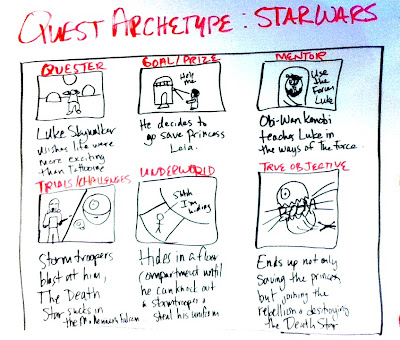 QUEST ARCHETYPE: STAR WARS
QUESTER
Luke Skywalker
wishes life were
more exciting
than Tattooine
GOAL/PRIZE
Help
me
He decides to
go save Princess
Leia.
MENTOR
Use
the
Force
Luke
Obi-Wan Kenobi
teaches Luke in
the ways of The Force.
TRIALS/CHALLENGES
Stormtroopers
blast at him,
The Death
Star sucks in
the Millennium Falcon
UNDERWORLD
Shhh
I'm
hiding
Hides in a floor
compartment until
he can knock out
a stormtrooper &
steal his uniform
TRUE OBJECTIVE
BOOM
Ends up not only
saving the princess
but joining the
rebellion & destroying
the Death Star